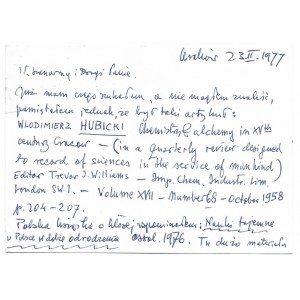 Kraków 23 II. 1977
Szanowny i Drogi Panie.
Już mam czego szukałem, a nie mogłem znaleźć,
pamiętałem jednak, że był taki artykuł:
WŁODZIMIERZ HUBICKI Chemistry & alchemy in XVth
century Cracow – (in a quarterly review designed
to record of sciences in the service of mankind)
Editor Trevor J. Williams – Imp. Chem. Industr. Lim.
London SW.1. – Volume XVII – Number 68 – October 1958
p. 204-207.
Polska książka o której zapomniałem: Nauki tajemne
w Polsce w dobie odrodzenia 1976. Tu dużo materiału